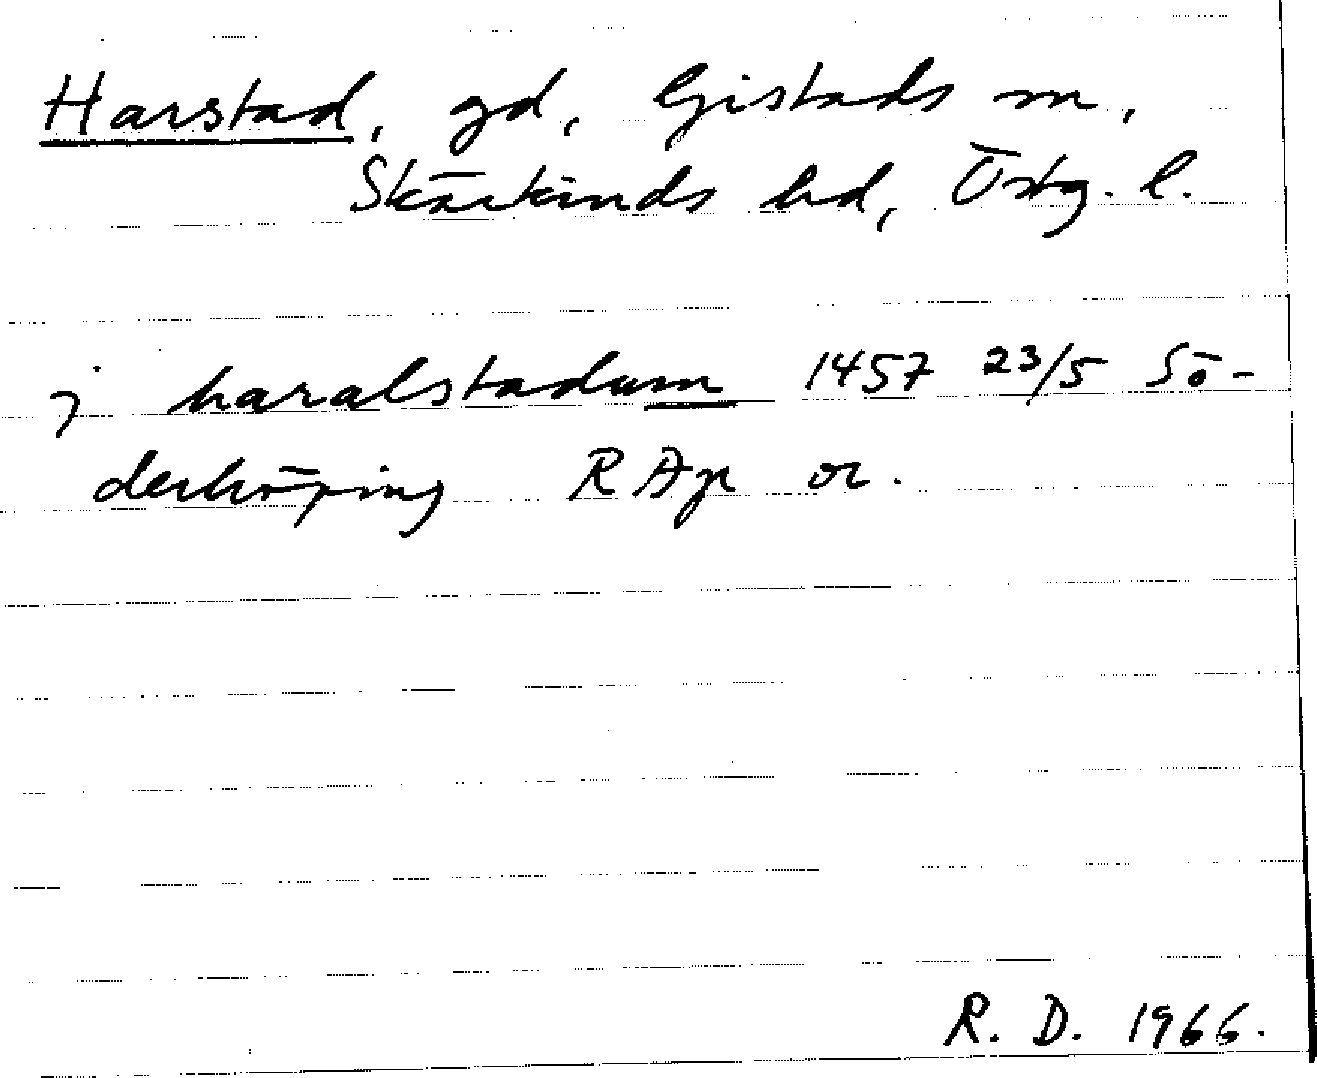 Harstad, gd, Gistads sn,
Skärkinds hd, Östg. l.
j haralstadum 1457 23/5 Sö-
derköping RAp or.
R. D. 1966.